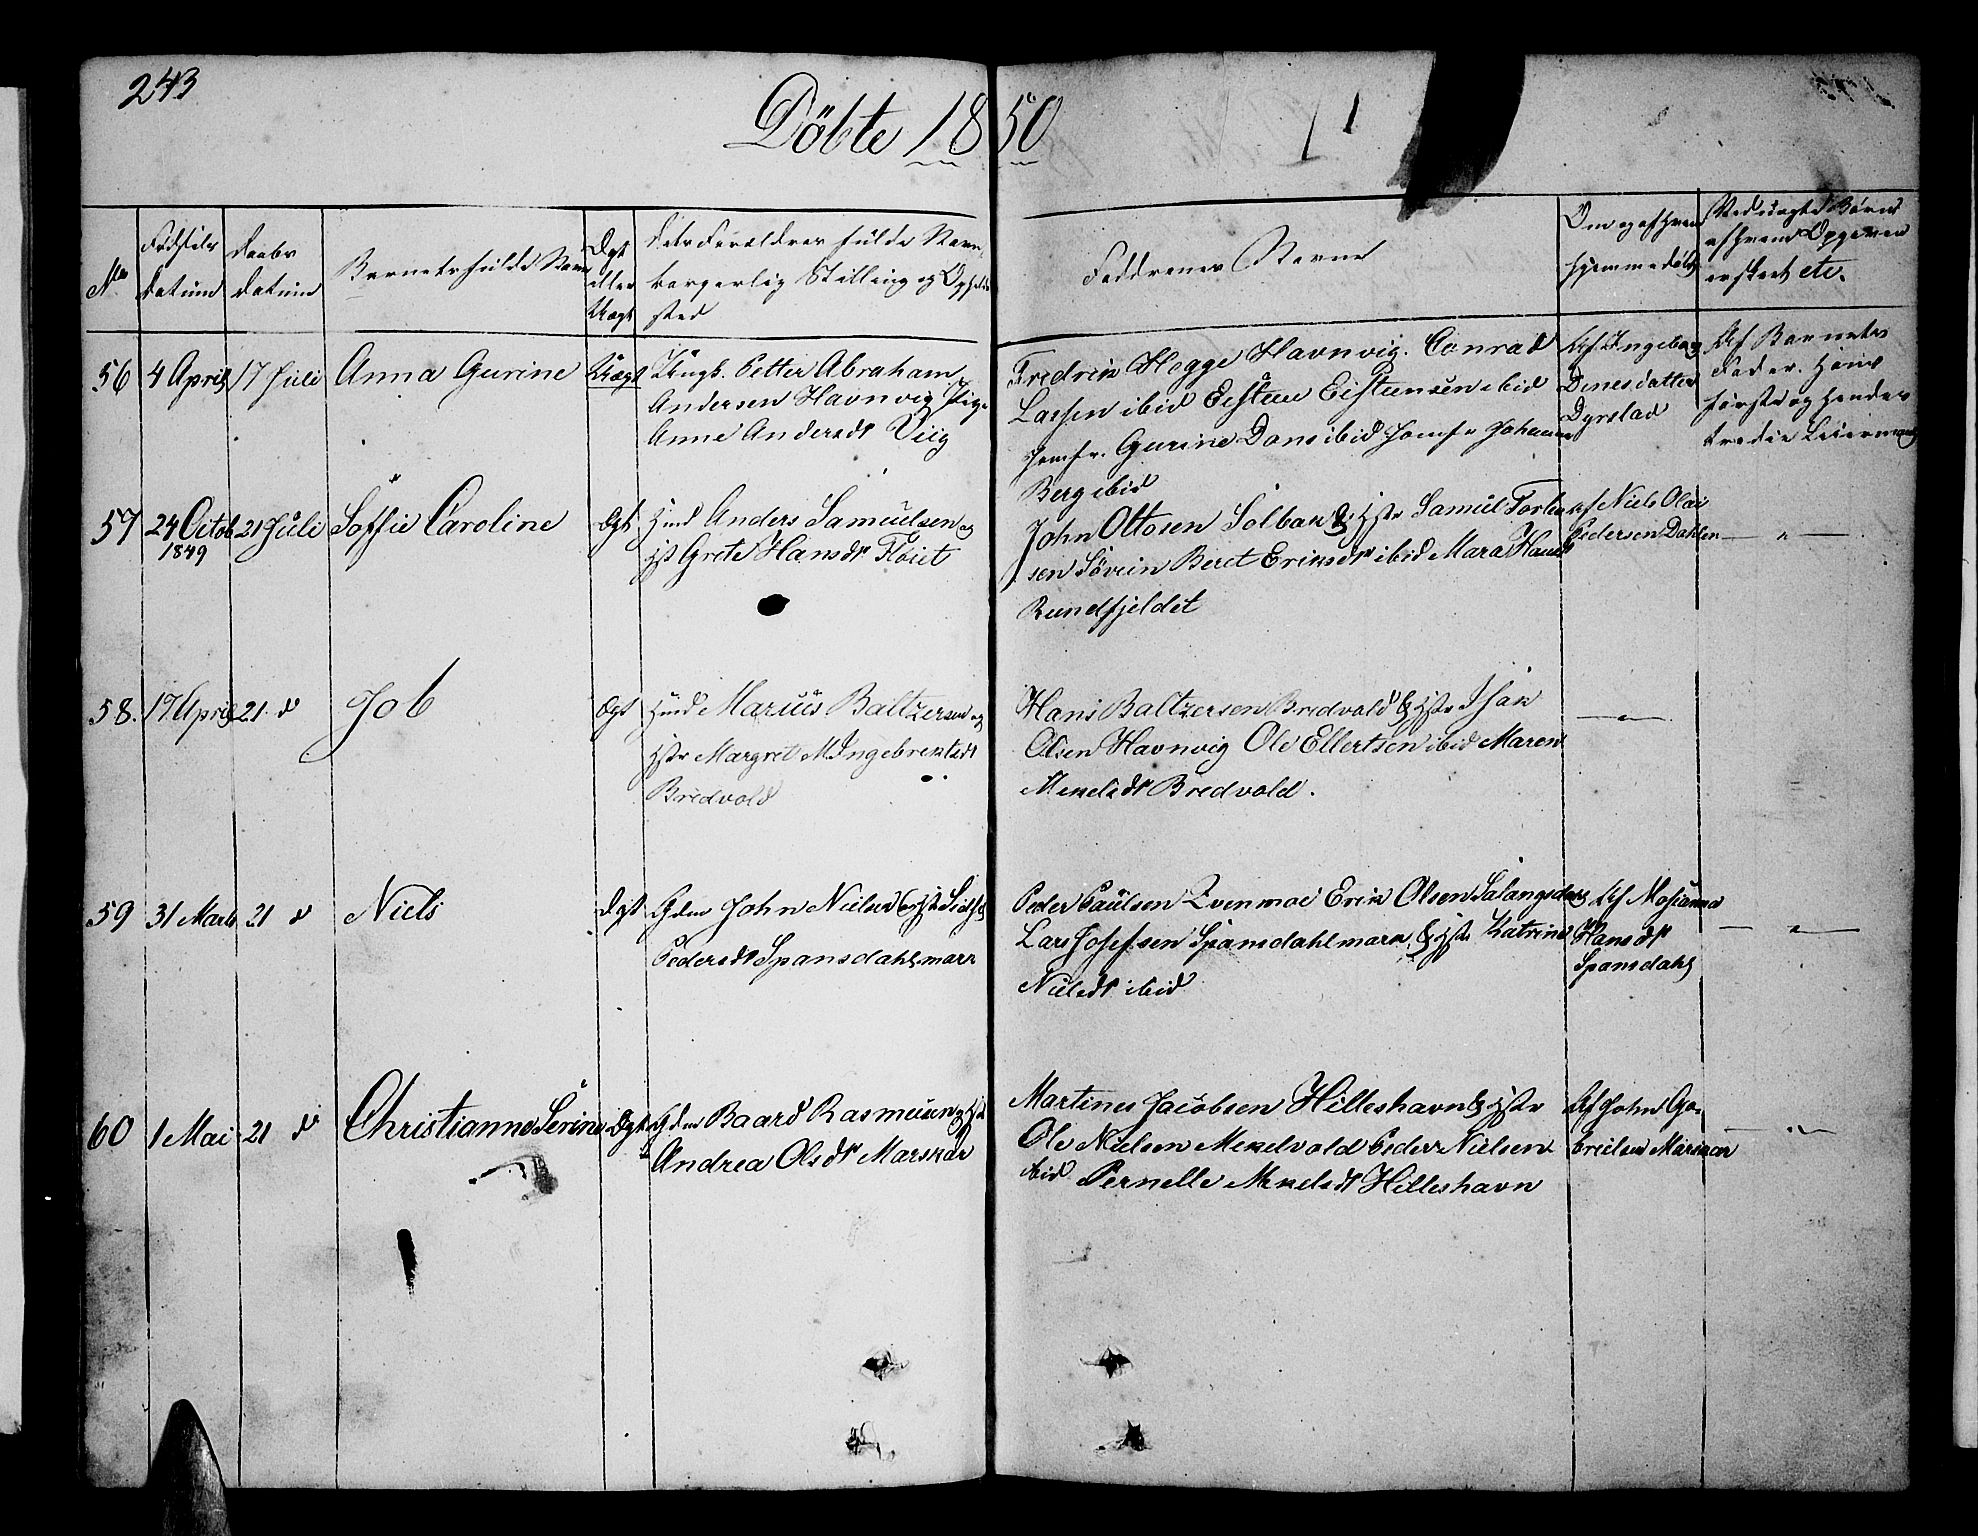 243
Döbte 1850
No
Fødsels
datum
Daabs
datum
Barnets fulde Navn
Ægt
eller
Uægt
dets Forældres fulde Navn,
borgerlig Stilling og Opholds
sted
Faddrenes Navne
Om og af hvem
hjemmedøbt
Ved uægte Børn
af hvem Opgaven
er skeet etc.
56 4 April 17 Juli Anna Gurine Uægt Ungk. Petter Abraham
Andersen Havnvig Pige
Anne Andersdt Viig
Fredrik Hegge Havnvig. Conrad
Larsen ibid Eisten Eistensen ibid
Jomfr. Gurine Dons ibid Jomfr Johanne
Berg ibid
Af Ingeborg
Denesdatter
Dyrstad
Af Barnets
Fader. Hans
første og hendes
tredie Leiermaal
57 24 Octob 21 Juli Soffie Caroline Ægt Huusmd Anders Samuelsen og
1849
Hst Grete Hansdt Fløiet
John Ottosen Solbak & Hstr Samul Torber
sen Søvein Beret Eriksdt ibid Mara Hansdt
Rundfjeldet
af Niels Olai
Pedersen Dahlen — " —
58. 17 April 21. d Job Ægt Huusmd Marius Baltzersen og
Hstr Margret M Ingebrektsdt
Bredvold
Hans Baltzersen Bredvold & Hstr Isak
Olsen Havnvig Ole Ellertsen ibid Maren
Mikelsdt Bredvold.
— " —
59 31 Marts 21 d Niels Ægt Gdm John Nielsen & Hstr
Pedersdt Spansdahlmark
Peder Paulsen Qvenmoe Erik Olsen Salangsdal
Lars Josefsen Spansdahlmark, & Hstr Katrine
Nielsdt ibid
Af Mosianna
Hansdt
Spansdahl
— " —
60 1 Mai 21 d Christianne Serine Ægt Gdm Baard Rasmusen og Hst
Andrea Olsdt Marskar
Martines Jacobsen Hilleshavn & Hstr
Ole Nielsen Mikelvold Peder Nielsen
ibid Pernelle Mikelsdt Hilleshavn
Af John Ga-
brielsen Marskar
— " —